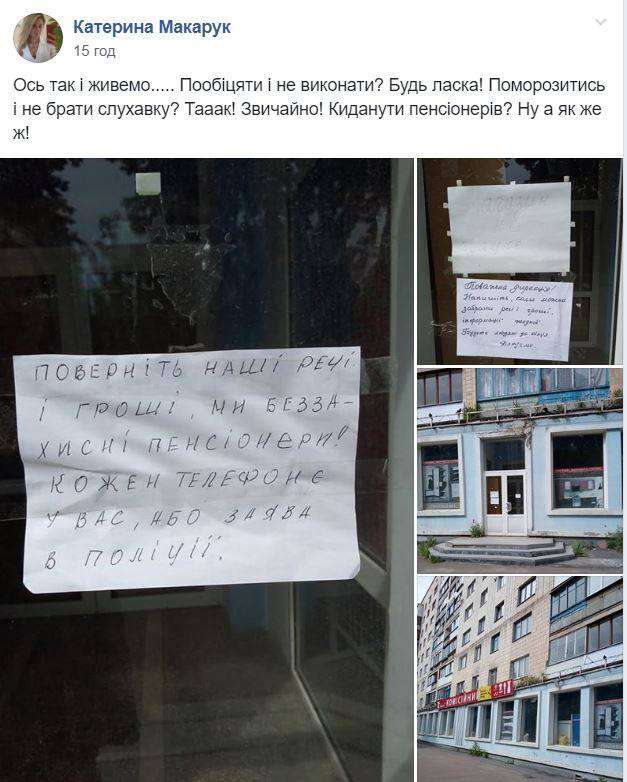 Катерина Макарук
15 год
Ось так і живемо..... Пообіцяти і не виконати? Будь ласка! Поморозитись
і не брати слухавку? Тааак! Звичайно! Киданути пенсіонерів? Ну а як же
ж!
ПОВЕРНІТЬ НАШІ РЕЧІ
І ГРОШІ, МИ БЕЗЗА-
ХИСНІ ПЕНСІОНЕРИ!
КОЖЕН ТЕЛЕФОН Є
У ВАС, АБО ЗАЯВА
В ПОЛІЦІЇ.
Магазин
не
Поважна дирекція!
Напишіть, коли можна
забрати речі і гроші,
інформації жодної
Будьте людьми до кінця
Дякуємо.
КОМІСІЙНИЙ